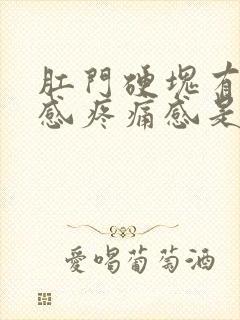 肛門硬塊有
感疼痛感是
愛喝葡萄酒